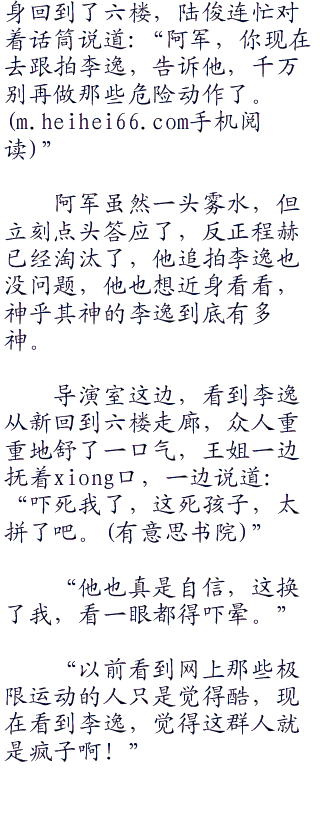 身回到了六楼，陆俊连忙对
着话筒说道：“阿军，你现在
去跟拍李逸，告诉他，千万
别再做那些危险动作了。
(m.heihei66.com手机阅
读)”
阿军虽然一头雾水，但
立刻点头答应了，反正程赫
已经淘汰了，他追拍李逸也
没问题，他也想近身看看，
神乎其神的李逸到底有多
神。
导演室这边，看到李逸
从新回到六楼走廊，众人重
重地舒了一口气，王姐一边
抚着xiong口，一边说道：
“吓死我了，这死孩子，太
拼了吧。(有意思书院)”
“他也真是自信，这换
了我，看一眼都得吓晕。”
“以前看到网上那些极
限运动的人只是觉得酷，现
在看到李逸，觉得这群人就
是疯子啊！”